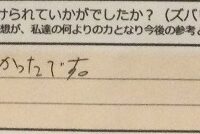 けられていかがでしたか？（ズバ
想が、私達の何よりの力となり今後の参考と
かったです。